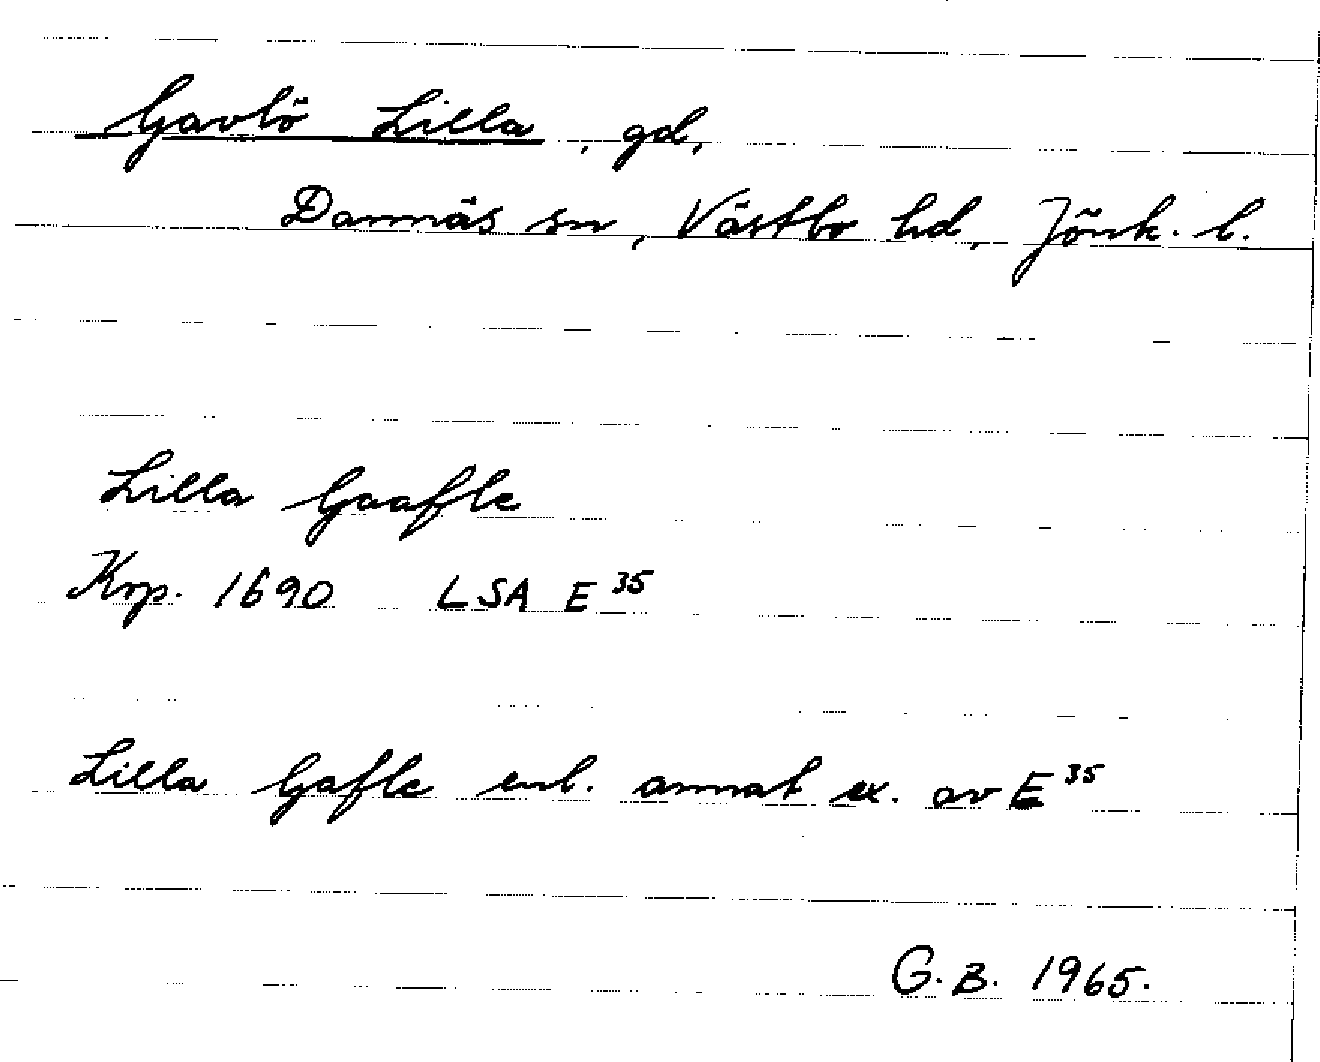 Gavlö Lilla, gd,
Dannäs sn, Västbo hd, Jönk. l.
Lilla Gaafle
Krp. 1690 LSA E 35
Lilla Gafle enl. annat ex. av E 35
G.B. 1965.